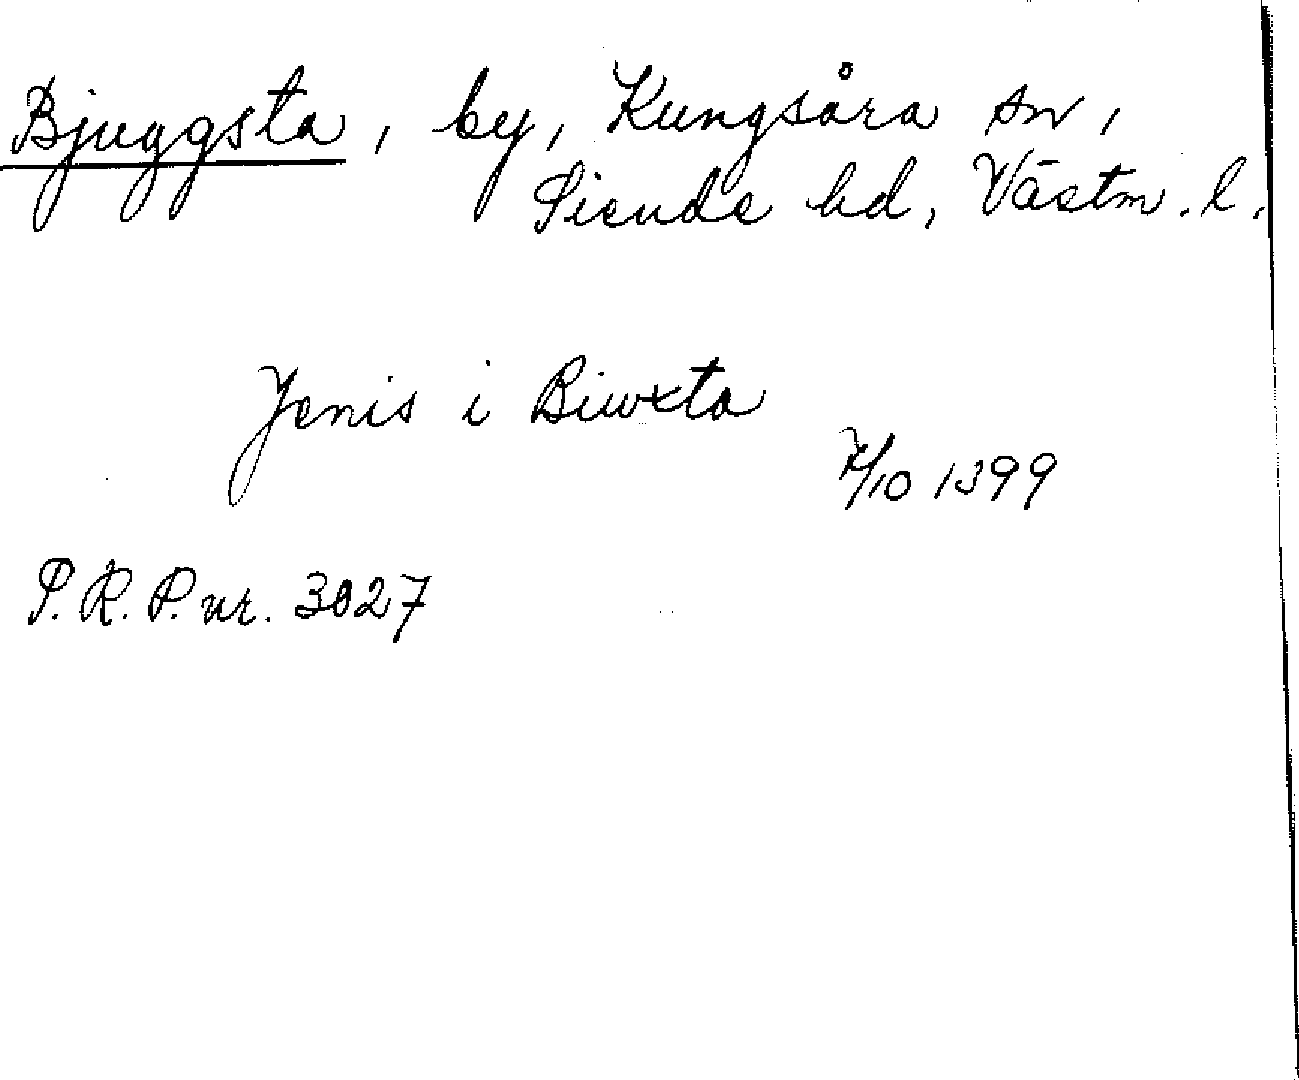 Bjuggsta, by, Kungsåra sn,
Siende hd, Västm. l.
Jenis i Biwxta
7/10 1399
P.R.P. nr. 3027